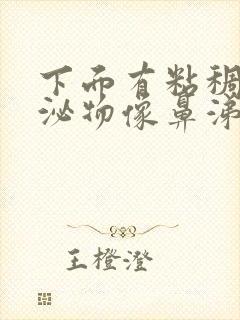 下而有粘稠
泌物像鼻涕
王橙澄